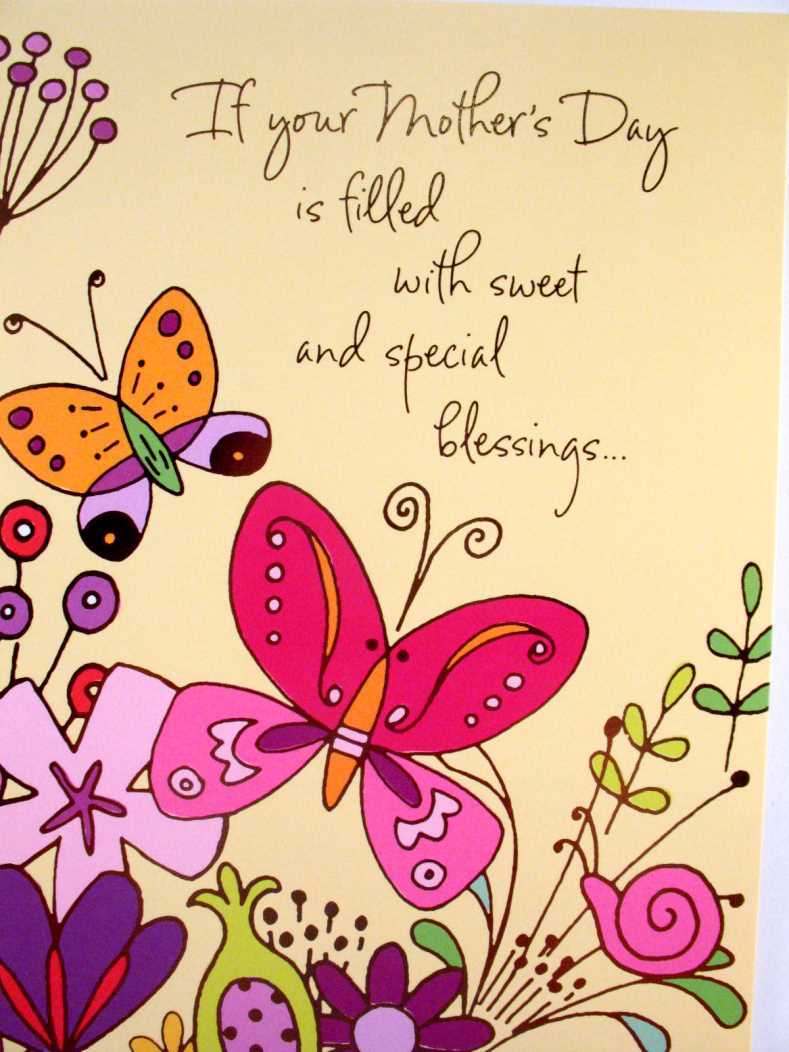 If your Mother's Day
is filled
with sweet
and special
blessings...